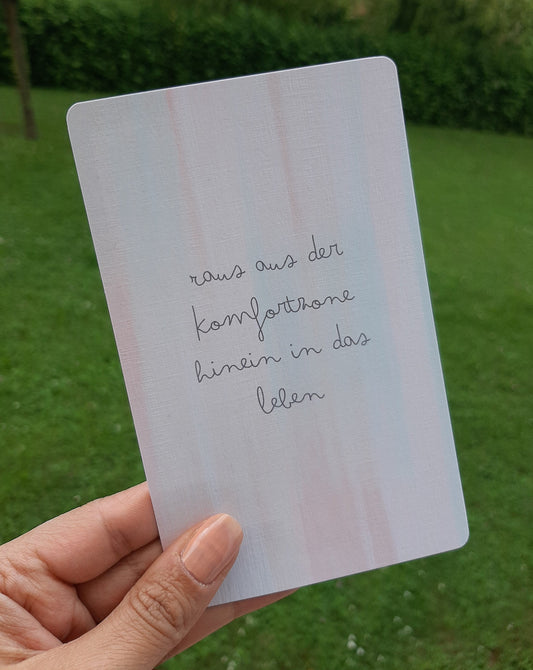 raus aus der
komfortzone
hinein in das
leben